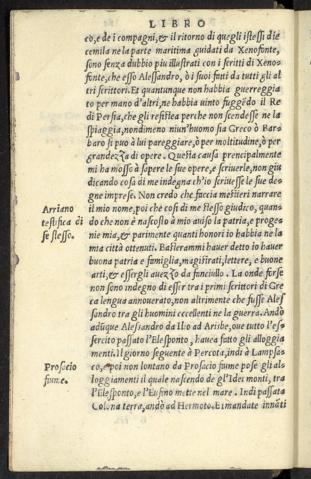 LIBRO
co, e de i compagni, & il ritorno di quegli istessi die
cemila ne la parte maritima, guidati da Xenofonte,
sono senza dubbio piu illustrati con i scritti di Xeno
fonte, che esso Alessandro, ò i suoi fatti da tutti gli al
tri scrittori. Et quantunque non habbia guerreggia
to per mano d'altri, ne habbia uinto fuggēdo il Re
di Persia, che gli resistea perche non scendesse ne la
spiaggia, nondimeno niun'huomo sia Greco ò Bar=
baro si può à lui pareggiare, ò per moltitudine, ò per
grandezza di opere. Questa causa prencipalmente
mi ha mosso à sapere le sue opere, e scriuerle, non giu
dicando cosa di me indegna ch'io scriuesse le sue de=
gne imprese. Non credo che faccia mestieri narrare
Arriano
testifica di
se stesso.
il mio nome, poi che cosi di me stesso giudico, quan=
do che non è nascosto à mio auiso la patria, e proge=
nie mia, & parimente quanti honori io habbia ne la
mia città ottenuti. Basterammi hauer detto io hauer
buona patria e famiglia, magistrati, lettere, e buone
arti, & essergli auezzo da funciullo. La onde forse
non sono indegno di esser tra i primi scrittori di Gre
ca lengua annouerato, non altrimente che fusse Ales
sandro tra gli huomini eccellenti ne la guerra. Andò
adūque Alessandro da Ilio ad Arisbe, oue tutto l'es=
sercito passato l'Elesponto, hauea fatto gli alloggia
menti. Il giorno seguente è Percota, indi à Lampsa=
Prosacio
fiume.
co, e poi non lontano da Prosacio fiume pose gli al=
loggiamenti il quale nascendo de gl'Idei monti, tra
l'Elesponto, e l'Eusino mette nel mare. Indi passata
Colona terra, andò ad Hermoto. Et mandate innāti